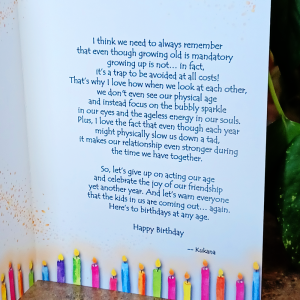 I think we need to always remember
that even though growing old is mandatory
growing up is not... in fact,
it's a trap to be avoided at all costs!
That's why I love how when we look at each other,
we don't even see our physical age
and instead focus on the bubbly sparkle
in our eyes and the ageless energy in our souls.
Plus, I love the fact that even though each year
might physically slow us down a tad,
it makes our relationship even stronger during
the time we have together.
So, let's give up on acting our age
and celebrate the joy of our friendship
yet another year. And let's warn everyone
that the kids in us are coming out... again.
Here's to birthdays at any age.
Happy Birthday
— Kukana